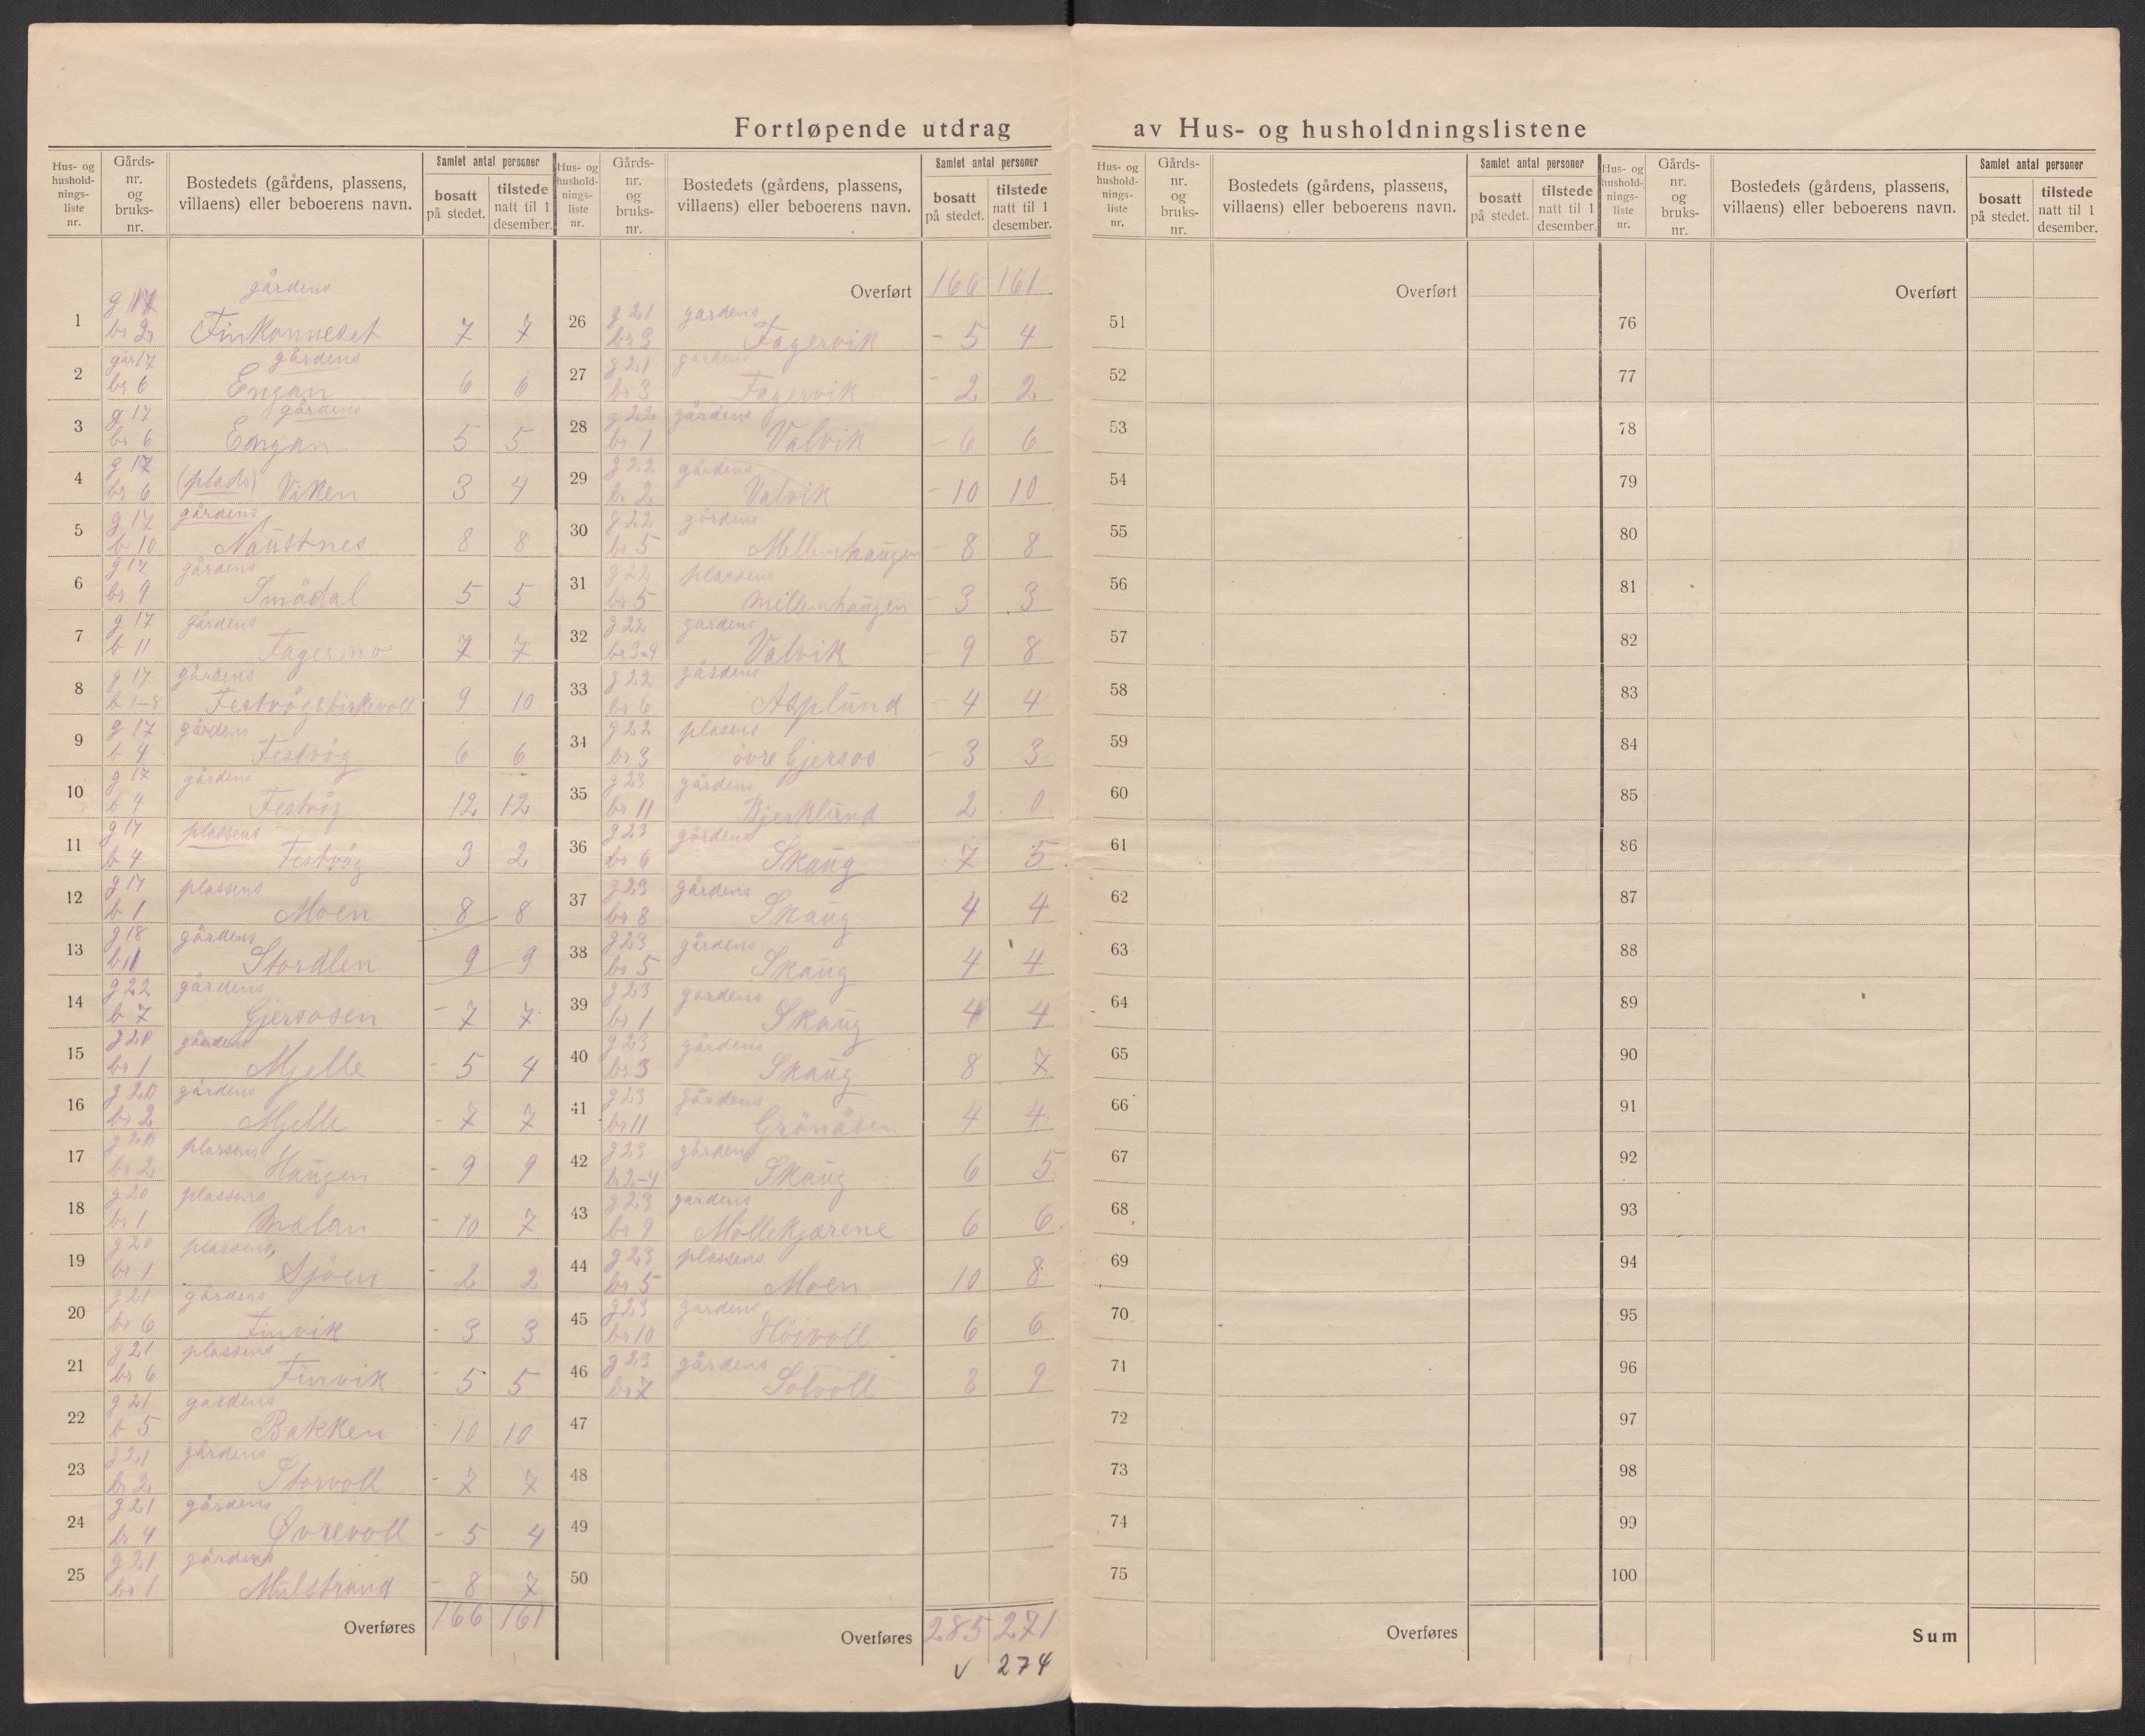 Fortløpende utdrag av Hus- og husholdningslistene
Hus- og husholdnings-liste nr. | Gårds-nr. og bruks-nr. | Bostedets (gårdens, plassens, villaens) eller beboerens navn. | Samlet antal personer | bosatt på stedet. | tilstede natt til 1 desember.
1 g 17 br 2 gårdens Finkonneset 7 7
2 går 17 br 6 gårdens Engan 6 6
3 g 17 br 6 gårdens Engan 5 5
4 g 17 br 6 (plads) Viken 3 4
5 g 17 b 10 gårdens Naustnes 8 8
6 g 17 br 9 gårdens Smådal 5 5
7 g 17 b 11 gårdens Fagermo 7 7
8 g 17 b 1-8 gårdens Festvåg&birkevoll 9 10
9 g 17 b 4 gårdens Festvåg 6 6
10 g 17 b 4 gårdens Festvåg 12 12
11 g 17 b 4 plassens Festvåg 3 2
12 g 17 b 1 plassens Moen 8 8
13 g 18 b 1 gårdens Stordlen 9 9
14 g 22 b 7 gårdens Gjersosen - 7 7
15 g 20 br 1 gårdens Mjelle - 5 4
16 g 20 br 2 gårdens Mjelle - 7 7
17 g 20 br 2 plassens Haugen - 9 9
18 g 20 br 1 plassens Malan - 10 7
19 g 20 br 1 plassens Sjöen - 2 2
20 g 21 br 6 gårdens Finvik - 3 3
21 g 21 br 6 plassens Finvik - 5 5
22 g 21 b 5 gardens Bakken - 10 10
23 g 21 br 2 gårdens Storvoll - 7 7
24 g 21 br 4 gårdens Øvrevoll - 5 4
25 g 21 br 1 gårdens Mulstrand - 8 7
Overføres 166 161
Hus- og husholdnings-liste nr. | Gårds-nr. og bruks-nr. | Bostedets (gårdens, plassens, villaens) eller beboerens navn. | Samlet antal personer | bosatt på stedet. | tilstede natt til 1 desember.
Overført 166 161
26 g 21 br 3 gardens Fagervik - 5 4
27 g 21 br 3 gardens Fagervik - 2 2
28 g 22 br 1 gårdens Valvik - 6 6
29 g 22 br 2 gårdens Valvik - 10 10
30 g 22 br 5 gårdens Mellemhaugen - 8 8
31 g 22 br 5 plassens Mellemhaugen - 3 3
32 g 22 br 3-4 gardens Valvik - 9 8
33 g 22 br 6 gårdens Asplund - 4 4
34 g 22 br 3 plasens övre Gjersos - 3 3
35 g 23 br 11 gårdens Bjerklund 2 0
36 g 23 br 6 gårdens Skaug 7 5
37 g 23 br 8 gårdens Skaug 4 4
38 g 23 br 5 gårdens Skaug 4 4
39 g 23 br 1 gardens Skaug 4 4
40 g 23 br 3 gårdens Skaug 8 7
41 g 23 br 11 gårdens Grönåsen 4 4
42 g 23 br 2-4 gården Skaug 6 5
43 g 23 br 9 gardens Möllekjærene 6 6
44 g 23 br 5 plassens Moen 10 8
45 g 23 br 10 gardens Höivoll 6 6
46 g 23 br 7 gårdens Solvoll 8 9
47
48
49
50
Overføres 285 271
v 274
Hus- og husholdnings-liste nr. | Gårds-nr. og bruks-nr. | Bostedets (gårdens, plassens, villaens) eller beboerens navn. | Samlet antal personer | bosatt på stedet. | tilstede natt til 1 desember.
Overført
51
52
53
54
55
56
57
58
59
60
61
62
63
64
65
66
67
68
69
70
71
72
73
74
75
Overføres
Hus- og husholdnings-liste nr. | Gårds-nr. og bruks-nr. | Bostedets (gårdens, plassens, villaens) eller beboerens navn. | Samlet antal personer | bosatt på stedet. | tilstede natt til 1 desember.
Overført
76
77
78
79
80
81
82
83
84
85
86
87
88
89
90
91
92
93
94
95
96
97
98
99
100
Sum